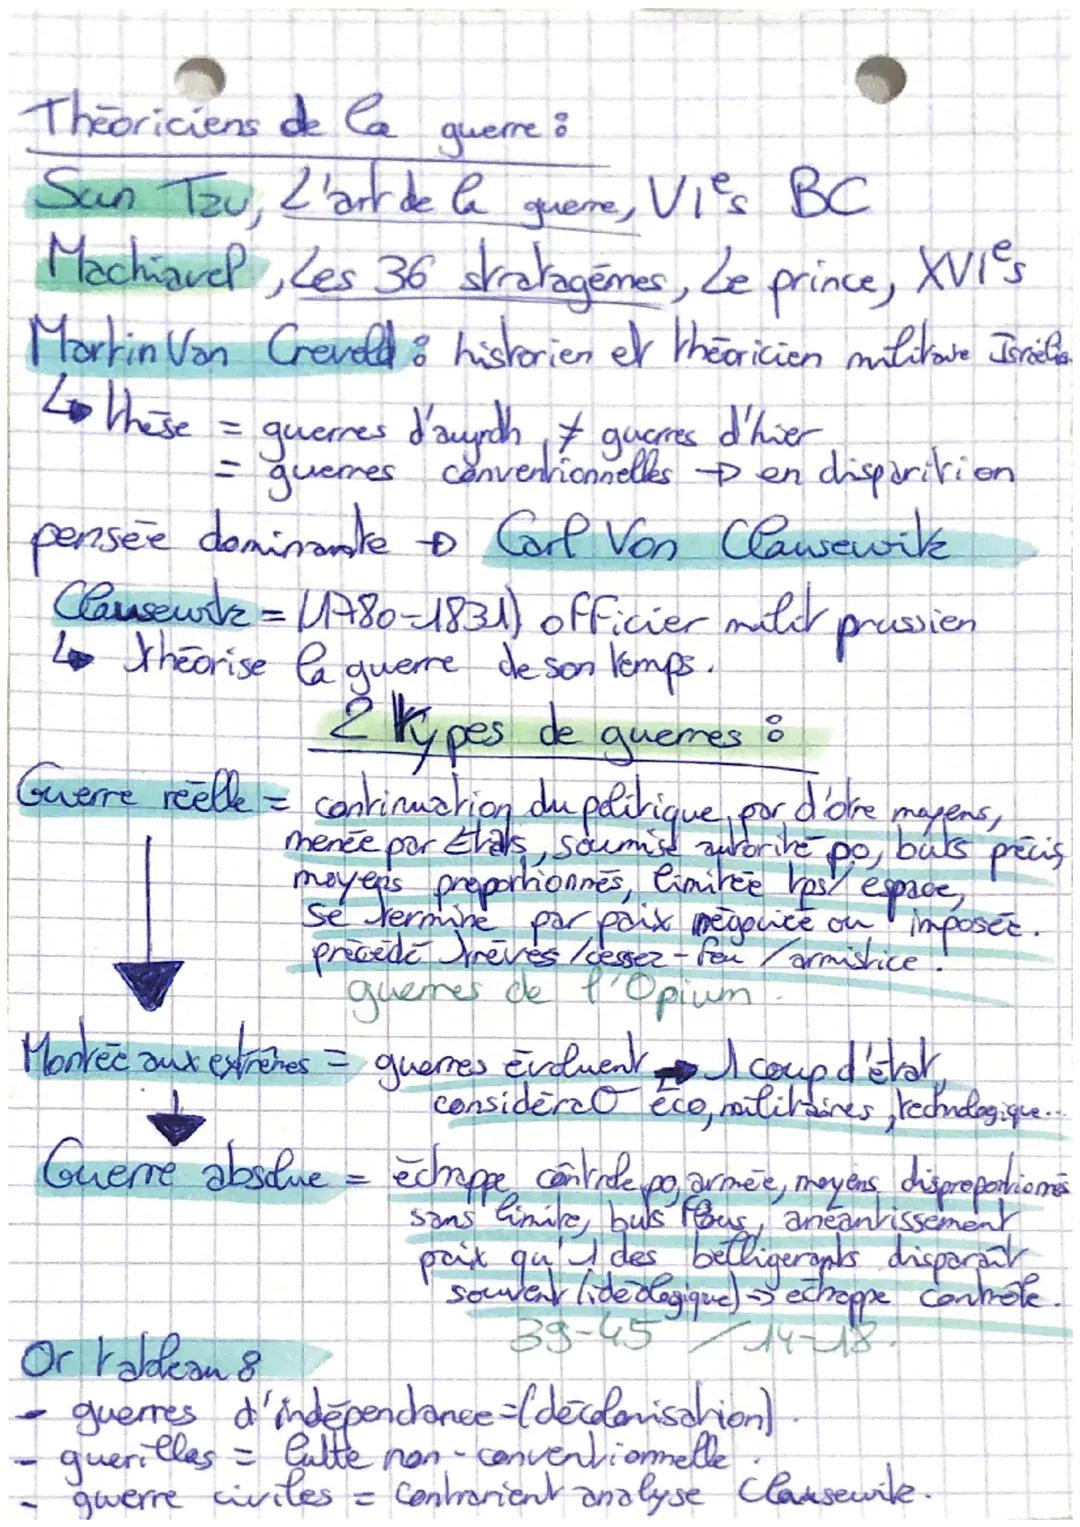 Théoriciens de la guerre :
Sun Tzu, L'art de la guerre, VIes BC
Machiavel, Les 36 stratagèmes, Le prince, XVIes
Martin Van Creveld : historien et théoricien militaire Israélie
↳ thèse = guerres d'aujrdh ≠ guerres d'hier
= guerres conventionnelles → en disparition
pensée dominante → Carl Von Clausewitz
Clausewitz = (1780-1831) officier milit prussien
↳ théorise la guerre de son temps.
2 types de guerres :
Guerre réelle = continuation du politique par d'otre moyens,
menée par États, soumise autorité po, buts précis
moyens proportionnés, limitée tps/ espace,
se termine par paix négociée ou imposée.
précédé trèves /cessez-feu /armistice.
guerres de l'Opium.
Montée aux extrêmes = guerres évoluent → 1 coup d'état,
considéra° éco, militaires, technologique...
Guerre absolue = échappe contrôle po, armée, moyens disproportionnés
sans limite, buts flous, anéantissement
paix qu' 1 des belligerants disparaît
souvent (idéologique) → échappe contrôle.
39-45 / 14-18.
Or tableau :
- guerres d'indépendance = (décolonisation).
- guerillas = lutte non-conventionnelle.
- guerre civiles = contrarient analyse Clausewitz.